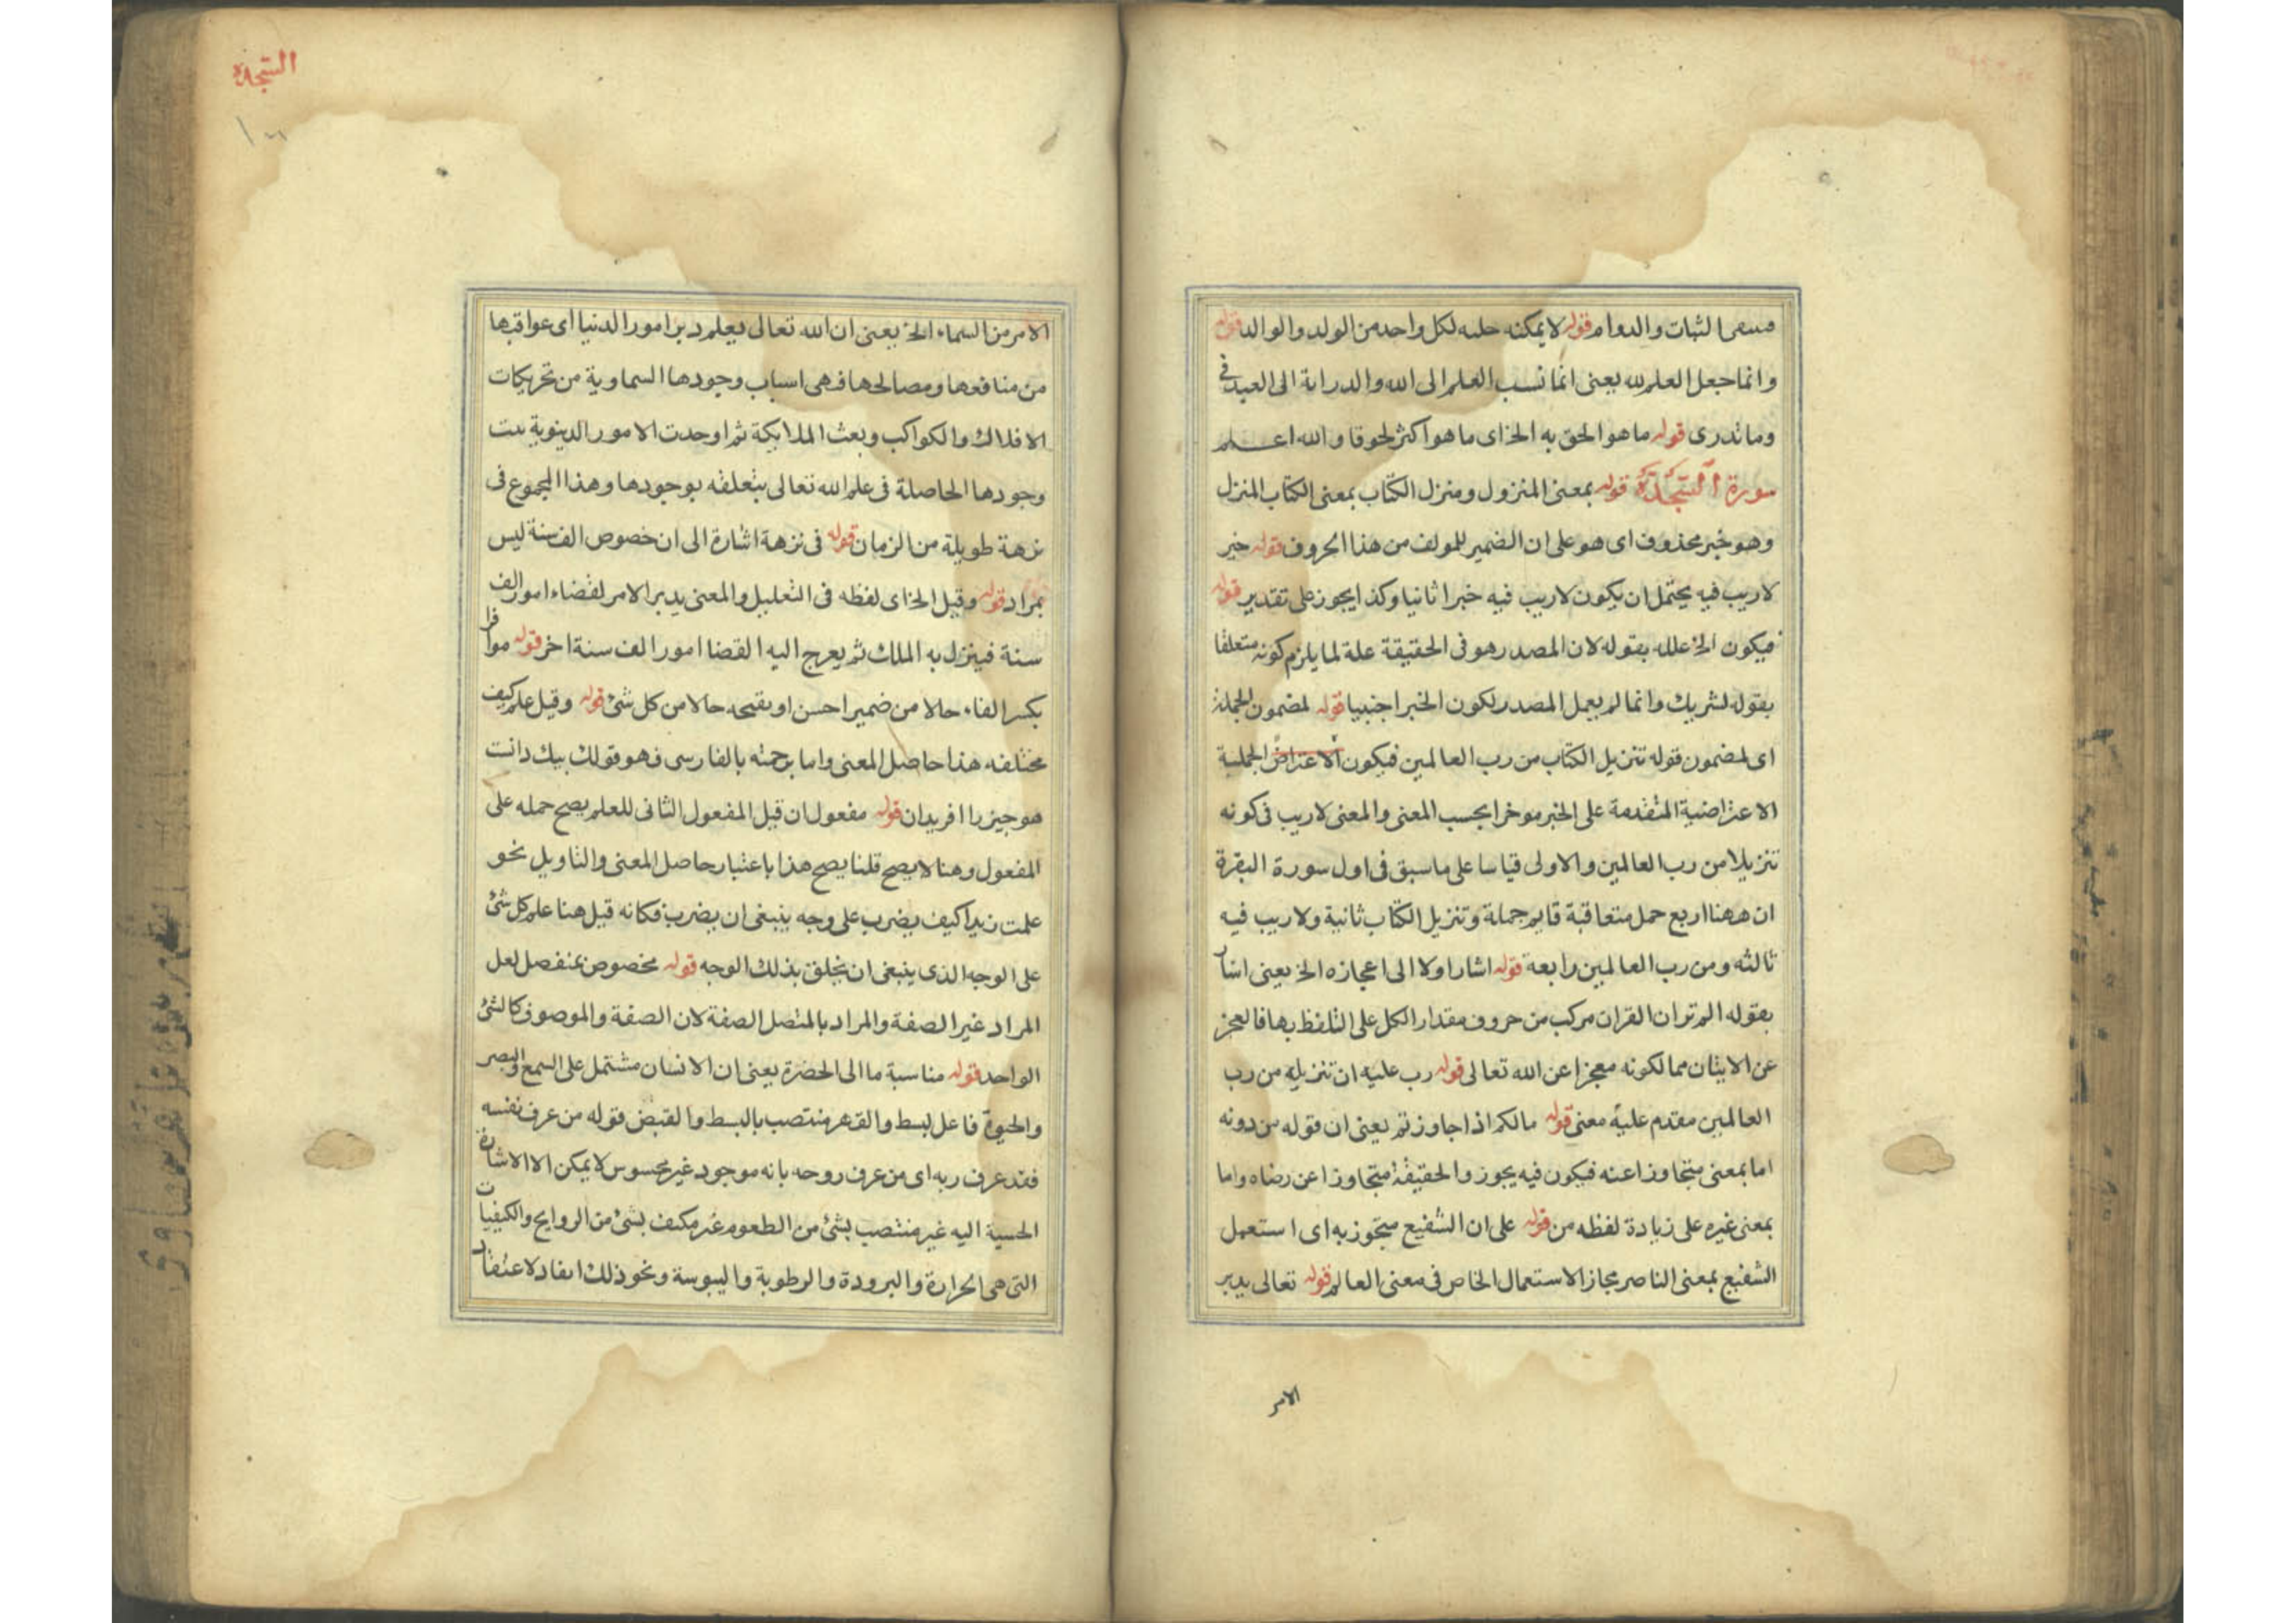 الثبات والدوام قوله لا يمكنه حلبه لكل واحد من الولد والوالد قوله
وانما جعل العلم لله يعنى انما نسب العلم الى الله والدراية الى العبد فى
وما تدرى قوله ما هو الحق به الخ اى ما هو اكثر لحوقا والله اعلم
سورة السجدة قوله بمعنى المنزول ومنزل الكتاب بمعنى الكتاب المنزل
وهو خبر محذوف اى هو على ان الضمير للمولف من هذا الحروف قوله خبر
لاريب فيه يحتمل ان يكون لاريب فيه خبرا ثانيا وكذا يجوز على تقدير قوله
فيكون الخ علله بقوله لان المصدر هو فى الحقيقة علة لما يلزم كونه متعلقا
بقوله لشريك وانما لم يعمل المصدر لكون الخبر اجنبيا قوله لمضمون الجملة
اى لمضمون قوله تنزيل الكتاب من رب العالمين فيكون الاعتراض الجملية
الاعتراضية المتقدمة على الخبر موخرا بحسب المعنى والمعنى لاريب فى كونه
تنزيلا من رب العالمين والاولى قياسا على ما سبق فى اول سورة البقرة
ان ههنا اربع جمل متعاقبة قايم جملة وتنزيل الكتاب ثانية ولاريب فيه
ثالثه ومن رب العالمين رابعة قوله اشار اولا الى اعجازه الخ يعنى اشار
بقوله الم تر ان القران مركب من حروف مقدار الكل على التلفظ بها فالعجز
عن الايثان مما لكونه معجزا عن الله تعالى قوله رب عليه ان تنزيله من رب
العالمين مقدم عليه معنى قوله مالكم اذا جاوزتم يعنى ان قوله من دونه
اما بمعنى متجاوزا عنه فيكون فيه يجوز والحقيقة متجاوزا عن رضاه واما
بمعنى غيره على زيادة لفظه من قوله على ان الشفيع متجوز به اى استعمل
الشفيع بمعنى الناصر مجازا لاستعمال الخاص فى معنى العالم قوله تعالى يدبر
الامر
السجدة
الامر من السماء الخ يعنى ان الله تعالى يعلم دبر امور الدنيا اى عواقبها
من منافعها ومصالحها فهى اسباب وجودها السماوية من تحريكات
الافلاك والكواكب وبعث الملايكة ثم اوجدت الامور الدينوية
وجودها الحاصلة فى علم الله تعالى بتعلقه بوجودها وهذا المجموع فى
نزهة طويلة من الزمان قوله فى نزهة اشارة الى ان خصوص الف سنة ليس
بمراد قوله وقيل الخ اى لفظه فى التعليل والمعنى يدبر الامر لقضاء امور الف
سنة فينزل به الملك ثم يعرج اليه القضا امور الف سنة اخر قوله موافرا
بكسر الفاء حالا من ضمير احسن او بفتحه حالا من كل شئ قوله وقيل علم كيف
مختلفه هذا حاصل المعنى واما برحمته بالفارسى فهو قولك بيك دانت
هو جيز را افريدان قوله مفعول ان قيل المفعول الثانى للعلم يصح حمله على
المفعول وهنا لا يصح قلنا يصح هذا باعتبار حاصل المعنى والتاويل نحو
علمت زيدا كيف يضرب على وجه ينبغى ان يضرب فكانه قيل هنا علم كل شئ
على الوجه الذى ينبغى ان يخلق بذلك الوجه قوله مخصوص بمنفصل لعل
المراد غير الصفة والمراد بالمتصل الصفة لان الصفة والموصوف كالشئ
الواحد قوله مناسبة ما الى الحضرة يعنى ان الانسان مشتمل على السمع والبصر
والحيوة فاعل لبسط والقهر منتصب بالبسط والقبض قوله من عرف نفسه
فقد عرف ربه اى من عرف روحه بانه موجود غير محسوس لا يمكن الا الاشارة
الحسية اليه غير منتصب بشئ من الطعوم غير مكيف بشئ من الروايح والكيفيات
التى هى الحرارة والبرودة والرطوبة واليبوسة ونحو ذلك